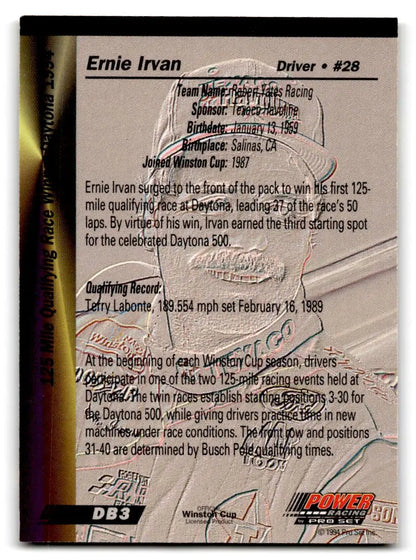 Ernie Irvan
Driver • #28
Team Name: Robert Yates Racing
Sponsor: Texaco Havoline
Birthdate: January 13, 1959
Birthplace: Salinas, CA
Joined Winston Cup: 1987
Ernie Irvan surged to the front of the pack to win his first 125-
mile qualifying race at Daytona, leading 27 of the race's 50
laps. By virtue of his win, Irvan earned the third starting spot
for the celebrated Daytona 500.
Qualifying Record:
Terry Labonte, 189.554 mph set February 16, 1989
At the beginning of each Winston Cup season, drivers
participate in one of the two 125-mile racing events held at
Daytona. The twin races establish starting positions 3-30 for
the Daytona 500, while giving drivers practice time in new
machines under race conditions. The front row and positions
31-40 are determined by Busch Pole qualifying times.
125 Mile Qualifying Race Daytona 1994
DB3
Winston Cup
Licensed Product
POWER
RACING
by PRO SET
© 1994 Pro Set Inc.